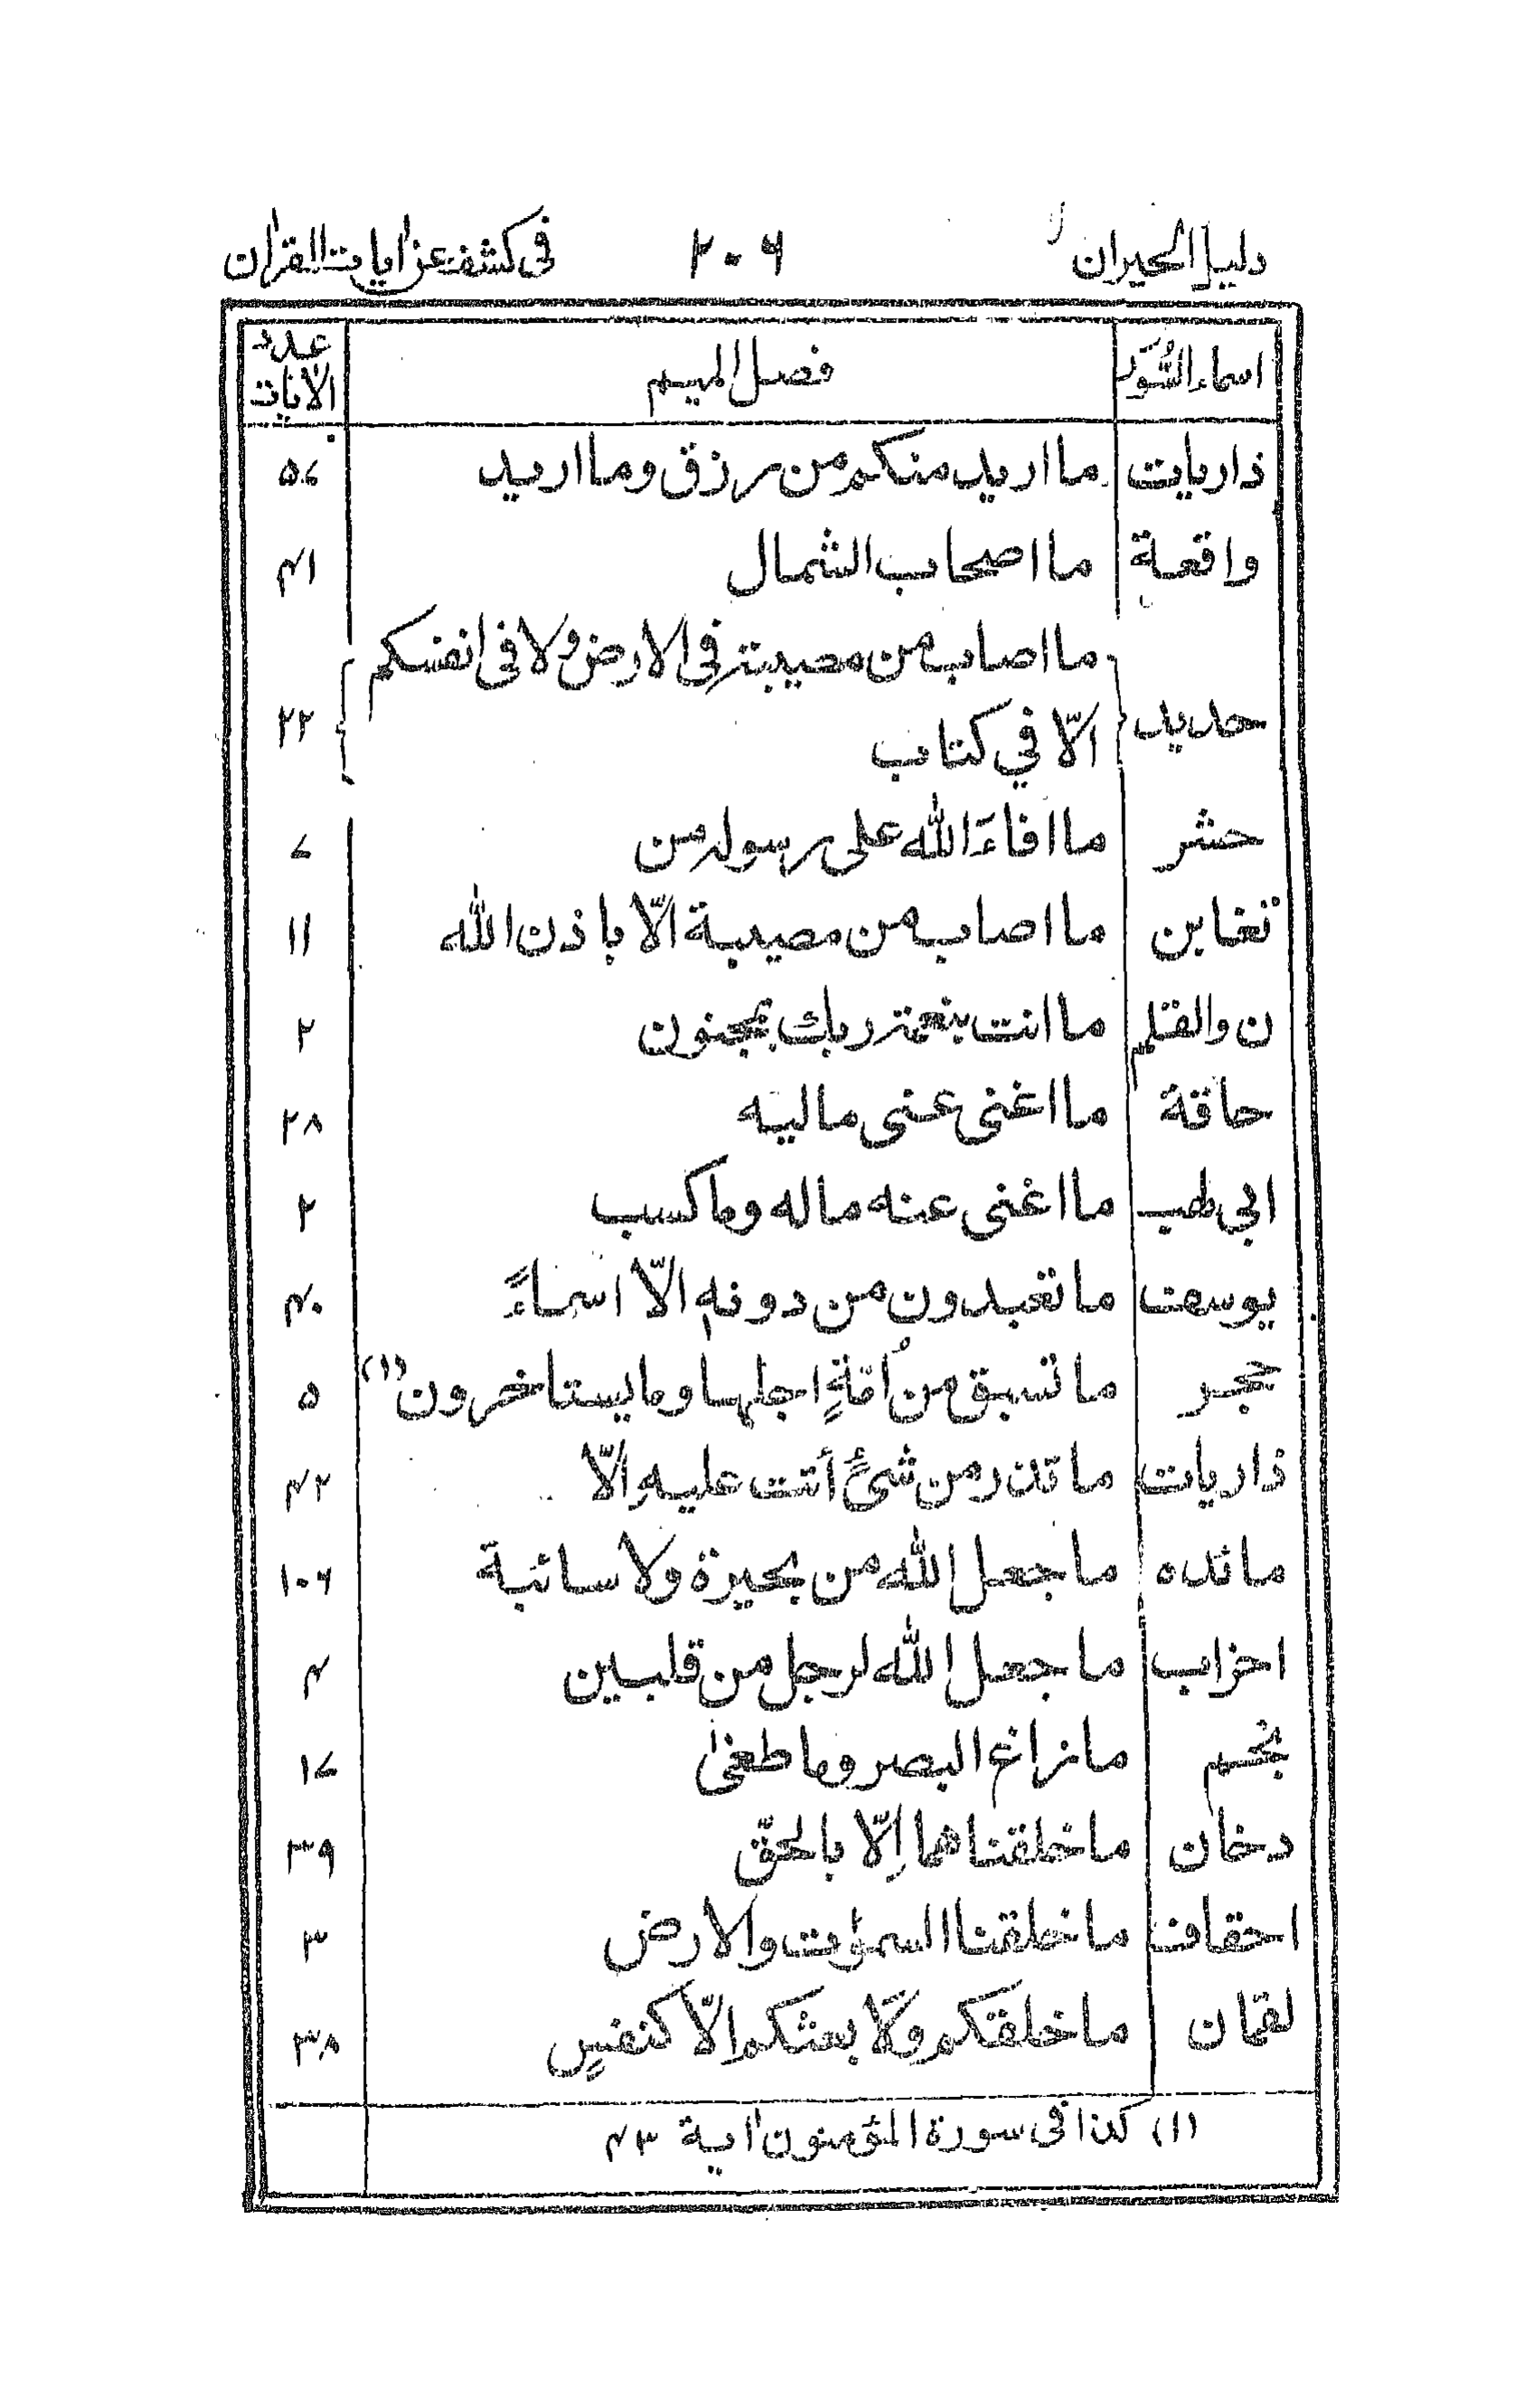 دليل الحيران ٢٠٦ فى كشف عن اٰيات القراٰن
اسماء السُّوَر فصل الميم عدد الاٰيات
ذاريات ما اريد منكم من رزق وما اريد ٥٧
واقعة ما اصحاب الشمال ٤١
ما اصاب من مصيبة فى الارض ولا فى انفسكم
حديد الّا في كتاب ٢٢
حشر ما افاءَ الله على رسوله من ٧
تغابن ما اصاب من مصيبة الّا باذن الله ١١
ن والقلم ما انت بنعمة ربك بمجنون ٢
حاقة ما اغنى عنى ماليه ٢٨
ابي لهب ما اغنى عنه ماله وما كسب ٢
يوسف ما تعبدون من دونهٖ الّا اسماءً ٤٠
حجر ما تسبق من اُمّةٍ اجلها وما يستاخرون (١) ٥
ذاريات ما تذر من شئٍ أتت عليه الّا ٤٢
مائده ما جعل الله من بحيرة ولا سائبة ١٠٦
احزاب ما جعل الله لرجل من قلبين ٤
نجم ما زاغ البصر وما طغىٰ ١٧
دخان ما خلقناهما اِلّا بالحقّ ٣٩
احقاف ما خلقنا السمٰوٰت والارض ٣
لقمان ما خلقكم ولَا بعثكم الّا كنفسٍ ٣٨
(١) كذا فى سورة المؤمنون اٰية ٤٣